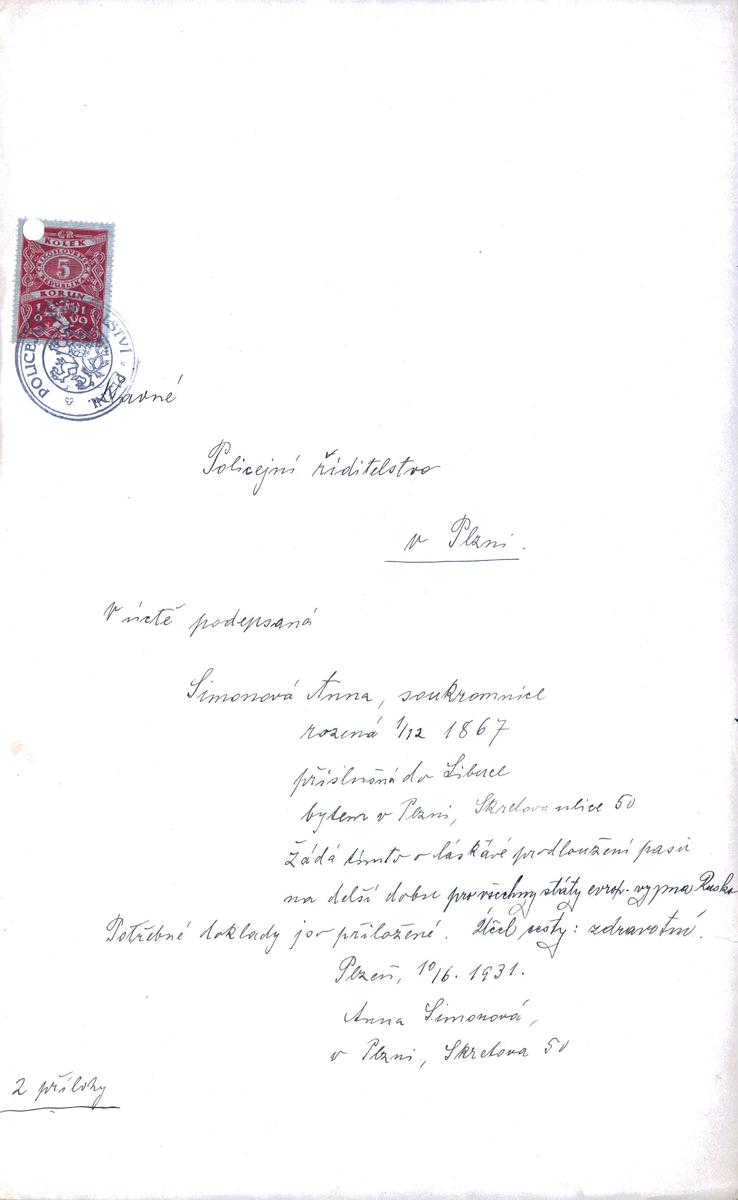 ČR
KOLEK
ČESKOSLOVENSKÁ
5
REPUBLIKA
KORUN
POLICEJNÍ ŘEDITELSTVÍ V PLZNI.
Slavné
Policejní řiditelstvo
v Plzni.
V úctě podepsaná
Simonová Anna, soukromnice
rozená 1/12 1867
příslušná do Liberce
bytem v Plzni, Skretova ulice 50
Žádá tímto o láskávé prodloužení pasu
na delší dobu pro všechny státy evrop. vyjma Rusko
Potřebné doklady jso přiložené. Účel cesty: zdravotní.
Plzeň, 10/6. 1931.
Anna Simonová,
v Plzni, Skretova 50
2 přílohy